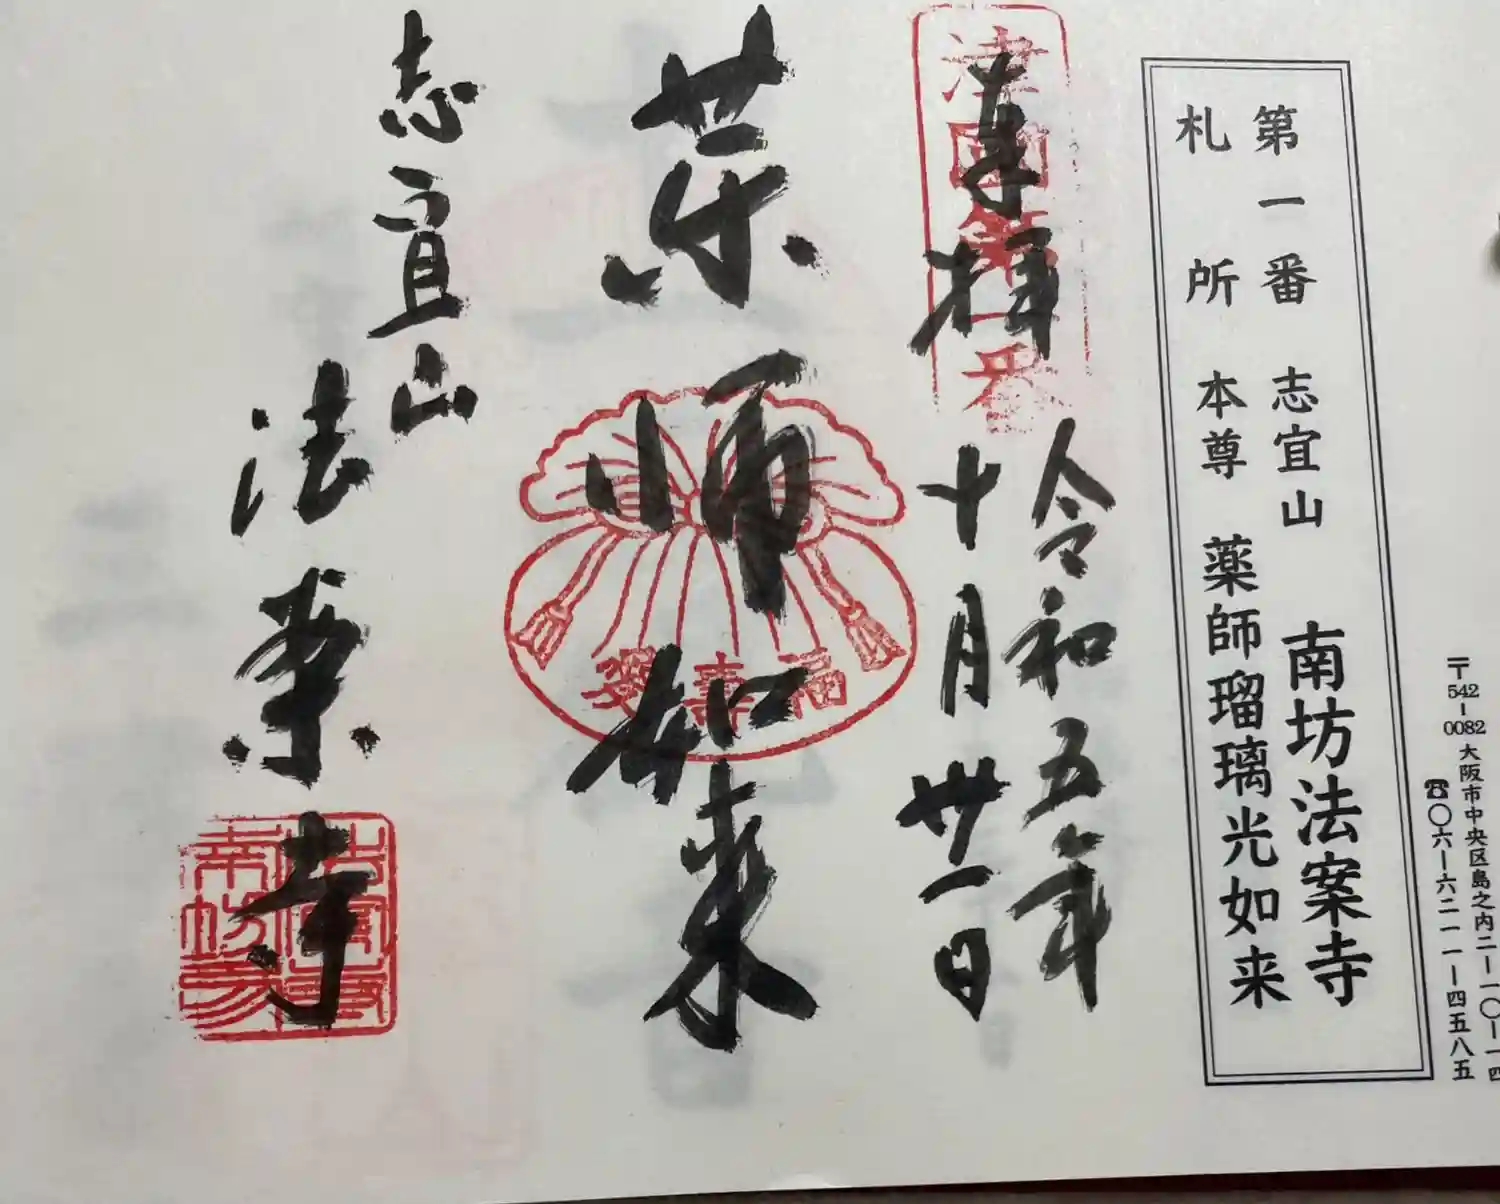 〒542-0082 大阪市中央区島之内二-一〇-一四
☎〇六-六二一一-四五八五
第一番 志宜山 南坊法案寺
札所 本尊 薬師瑠璃光如来
津國第一番
奉拝
令和五年
十月卅一日
薬師如来
福壽愛
志宜山
法案寺
法案寺
南坊